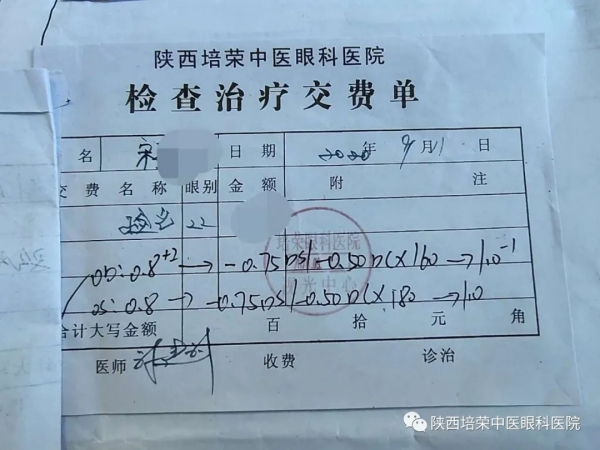 陕西培荣中医眼科医院
检查治疗交费单
名 宋 日期 2020年9月11日
交费名称 眼别 金额 附 注
验光 22
培荣眼科医院
OD: 0.8+2 → -0.75DS/-0.50DC×160 → 1.0-1
OS: 0.8 → -0.75DS/-0.50DC×180 → 1.0
合计大写金额 百 拾 元 角
医师 收费 诊治
陕西培荣中医眼科医院